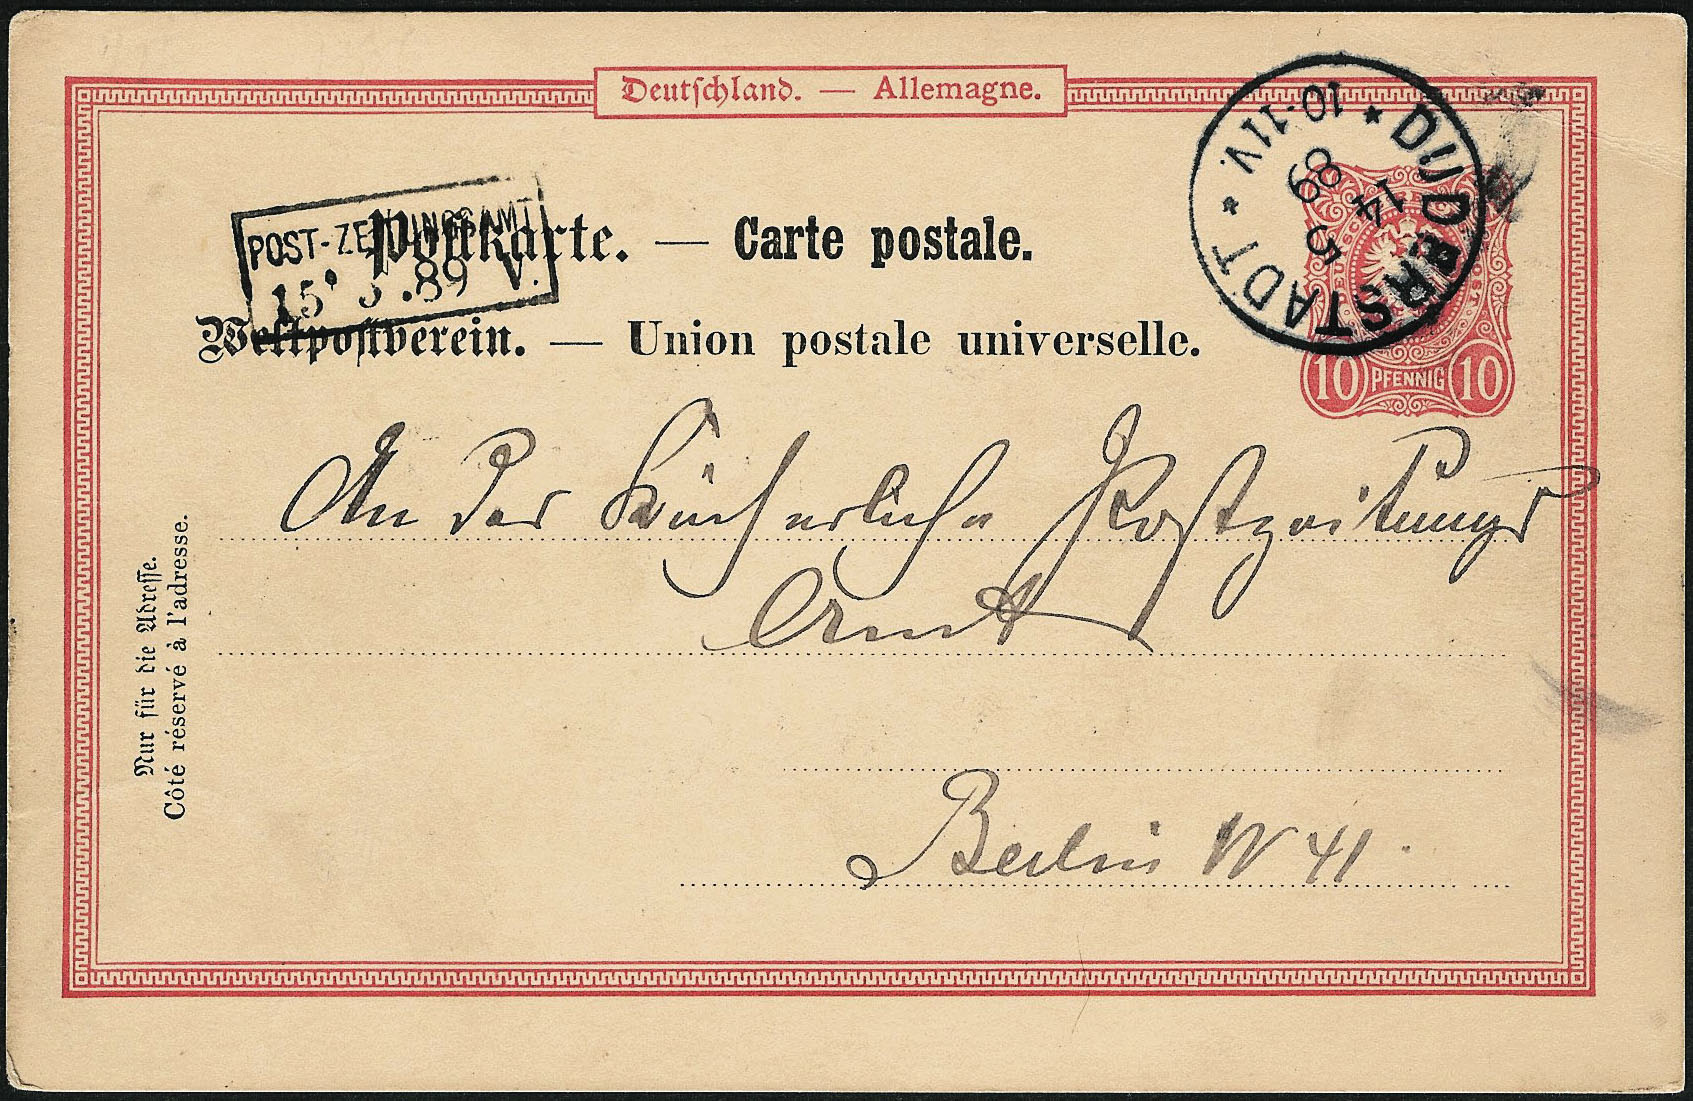 Deutschland. — Allemagne.
DUDERSTADT
14 5 89
10-11V.
POST-ZEITUNGSAMT
15 5.89 V.
Postkarte. — Carte postale.
Weltpostverein. — Union postale universelle.
10 PFENNIG 10
An das
Postzeitungs
Amt
Berlin W 41.
Nur für die Adresse.
Côté réservé à l'adresse.